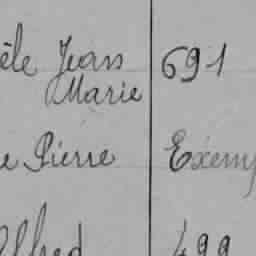 èle Jean 691
Marie
e Pierre Exem
Alfred 499